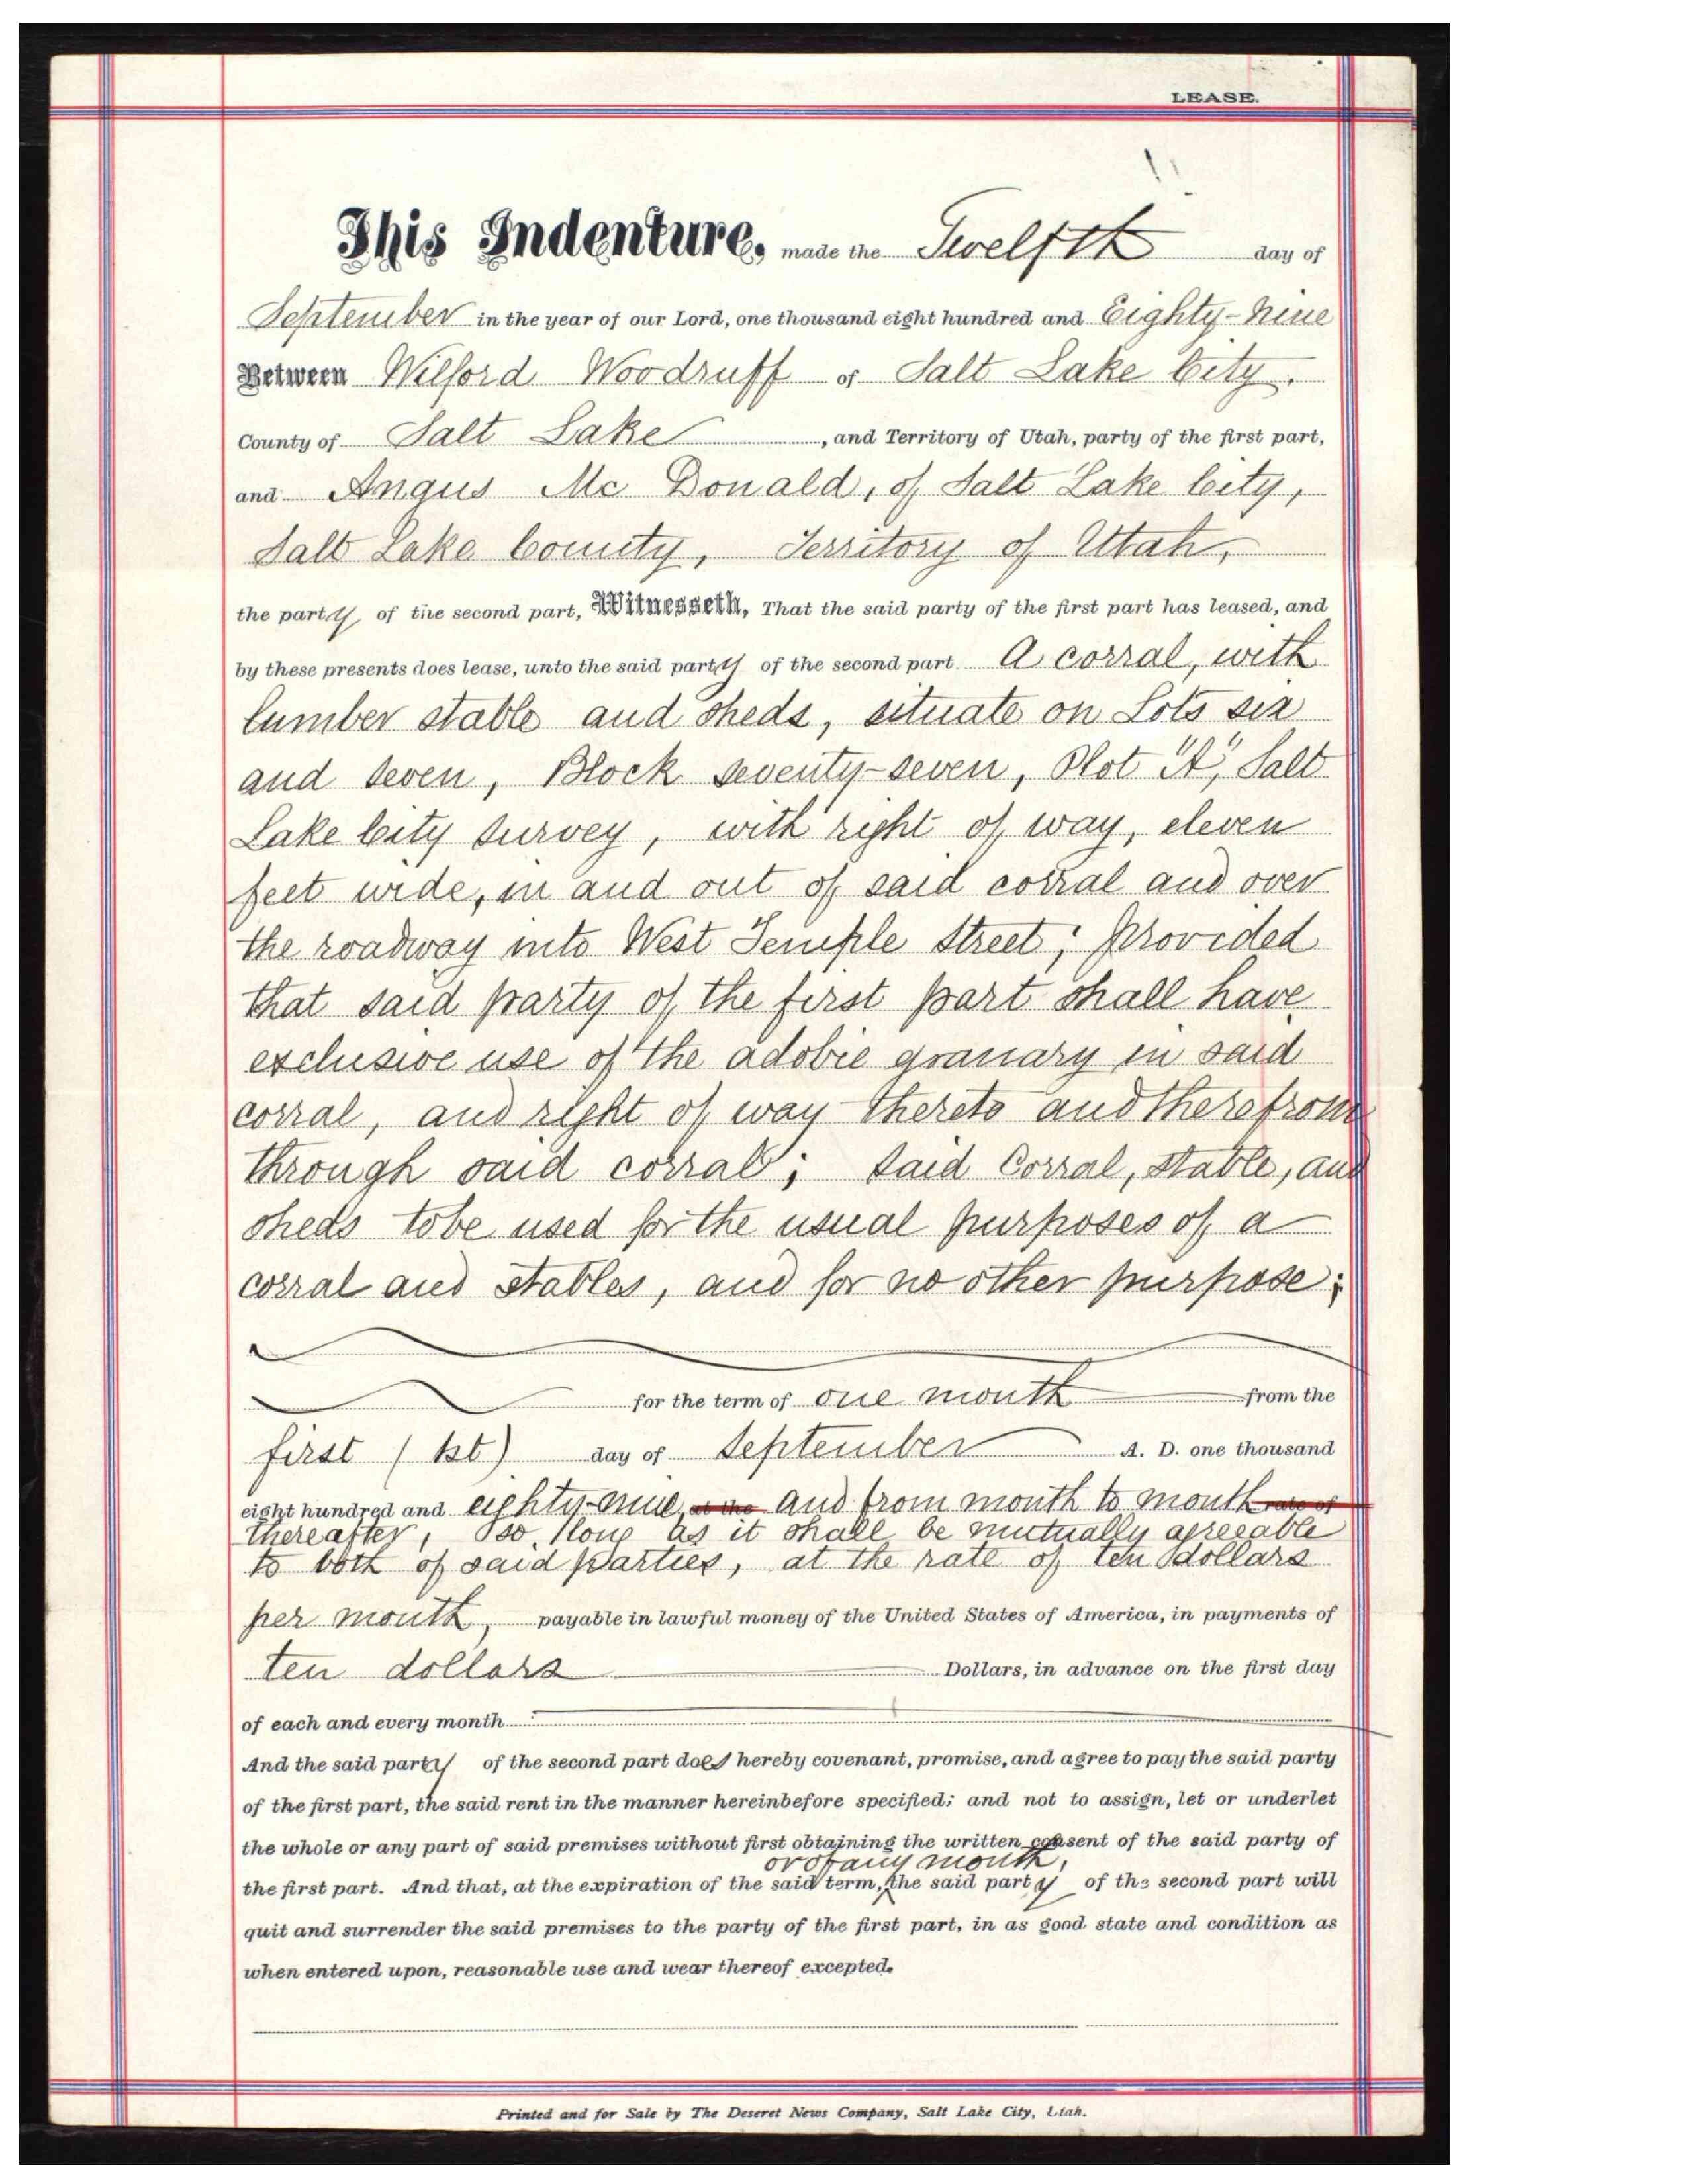 LEASE.
This Indenture, made the Twelfth day of
September in the year of our Lord, one thousand eight hundred and Eighty-Nine
Between Wilford Woodruff of Salt Lake City,
County of Salt Lake, and Territory of Utah, party of the first part,
and Angus Mc Donald, of Salt Lake City,
Salt Lake County, Territory of Utah,
the party of the second part, Witnesseth, That the said party of the first part has leased, and
by these presents does lease, unto the said party of the second part A corral, with
lumber stable and sheds, situate on Lots six
and seven, Block seventy-seven, Plot "A", Salt
Lake City survey, with right of way, eleven
feet wide, in and out of said corral and over
the roadway into West Temple Street; provided
that said party of the first part shall have
exclusive use of the adobie granary in said
corral, and right of way thereto and therefrom
through said corral; said Corral, stable, and
sheds to be used for the usual purposes of a
corral and stables, and for no other purpose;
for the term of one month from the
first (1st) day of September A. D. one thousand
eight hundred and eighty-nine, at the and from month to month rate of
thereafter, so long as it shall be mutually agreeable
to both of said parties, at the rate of ten dollars
per month, payable in lawful money of the United States of America, in payments of
ten dollars Dollars, in advance on the first day
of each and every month
And the said party of the second part does hereby covenant, promise, and agree to pay the said party
of the first part, the said rent in the manner hereinbefore specified; and not to assign, let or underlet
the whole or any part of said premises without first obtaining the written consent of the said party of
or of any month,
the first part. And that, at the expiration of the said term, the said party of the second part will
quit and surrender the said premises to the party of the first part, in as good state and condition as
when entered upon, reasonable use and wear thereof excepted.
Printed and for Sale by The Deseret News Company, Salt Lake City, Utah.